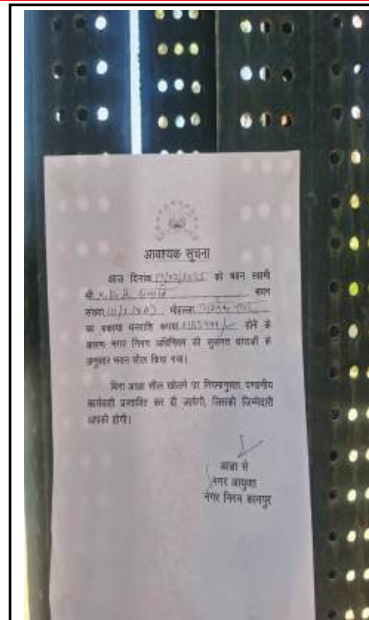 आवश्यक सूचना
आज दिनांक को भवन स्वामी
श्री भवन
संख्या मोहल्ला
का बकाया धनराशि रूपया होने के
कारण नगर निगम अधिनियम की सुसंगत धाराओं के
अनुसार भवन सील किया गया।
बिना आज्ञा सील खोलने पर नियमानुसार दण्डनीय
कार्यवाही प्रस्तावित कर दी जायेगी, जिसकी जिम्मेदारी
आपकी होगी।
आज्ञा से
नगर आयुक्त
नगर निगम कानपुर